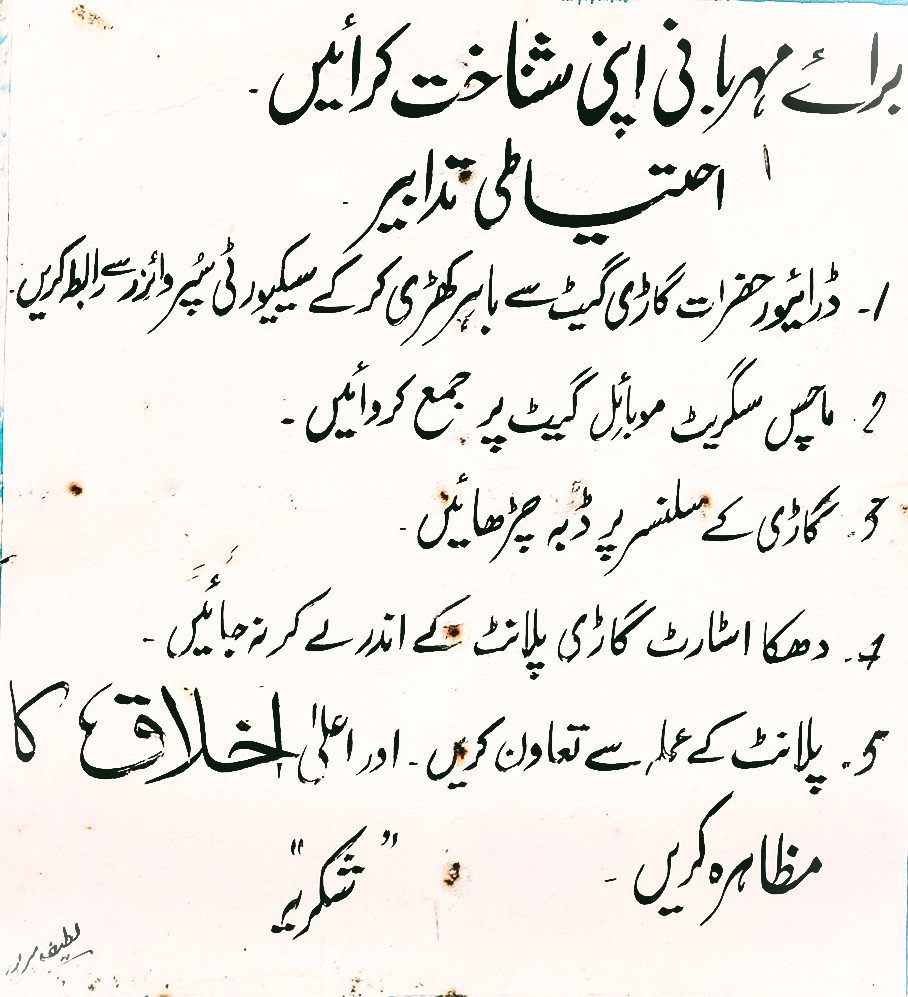 برائے مہربانی اپنی شناخت کرائیں۔
احتیاطی تدابیر
1۔ ڈرائیور حضرات گاڑی گیٹ سے باہر کھڑی کر کے سیکیورٹی سُپروائزر سے رابطہ کریں۔
2۔ ماچس سگریٹ موبائل گیٹ پر جمع کروائیں۔
3۔ گاڑی کے سلنسر پر ڈبہ چڑھائیں۔
4۔ دھکا اسٹارٹ گاڑی پلانٹ کے اندر لے کر نہ جائیں۔
5۔ پلانٹ کے عملہ سے تعاون کریں۔ اور اعلیٰ اخلاق کا
مظاہرہ کریں۔
"شکریہ"
لطیف